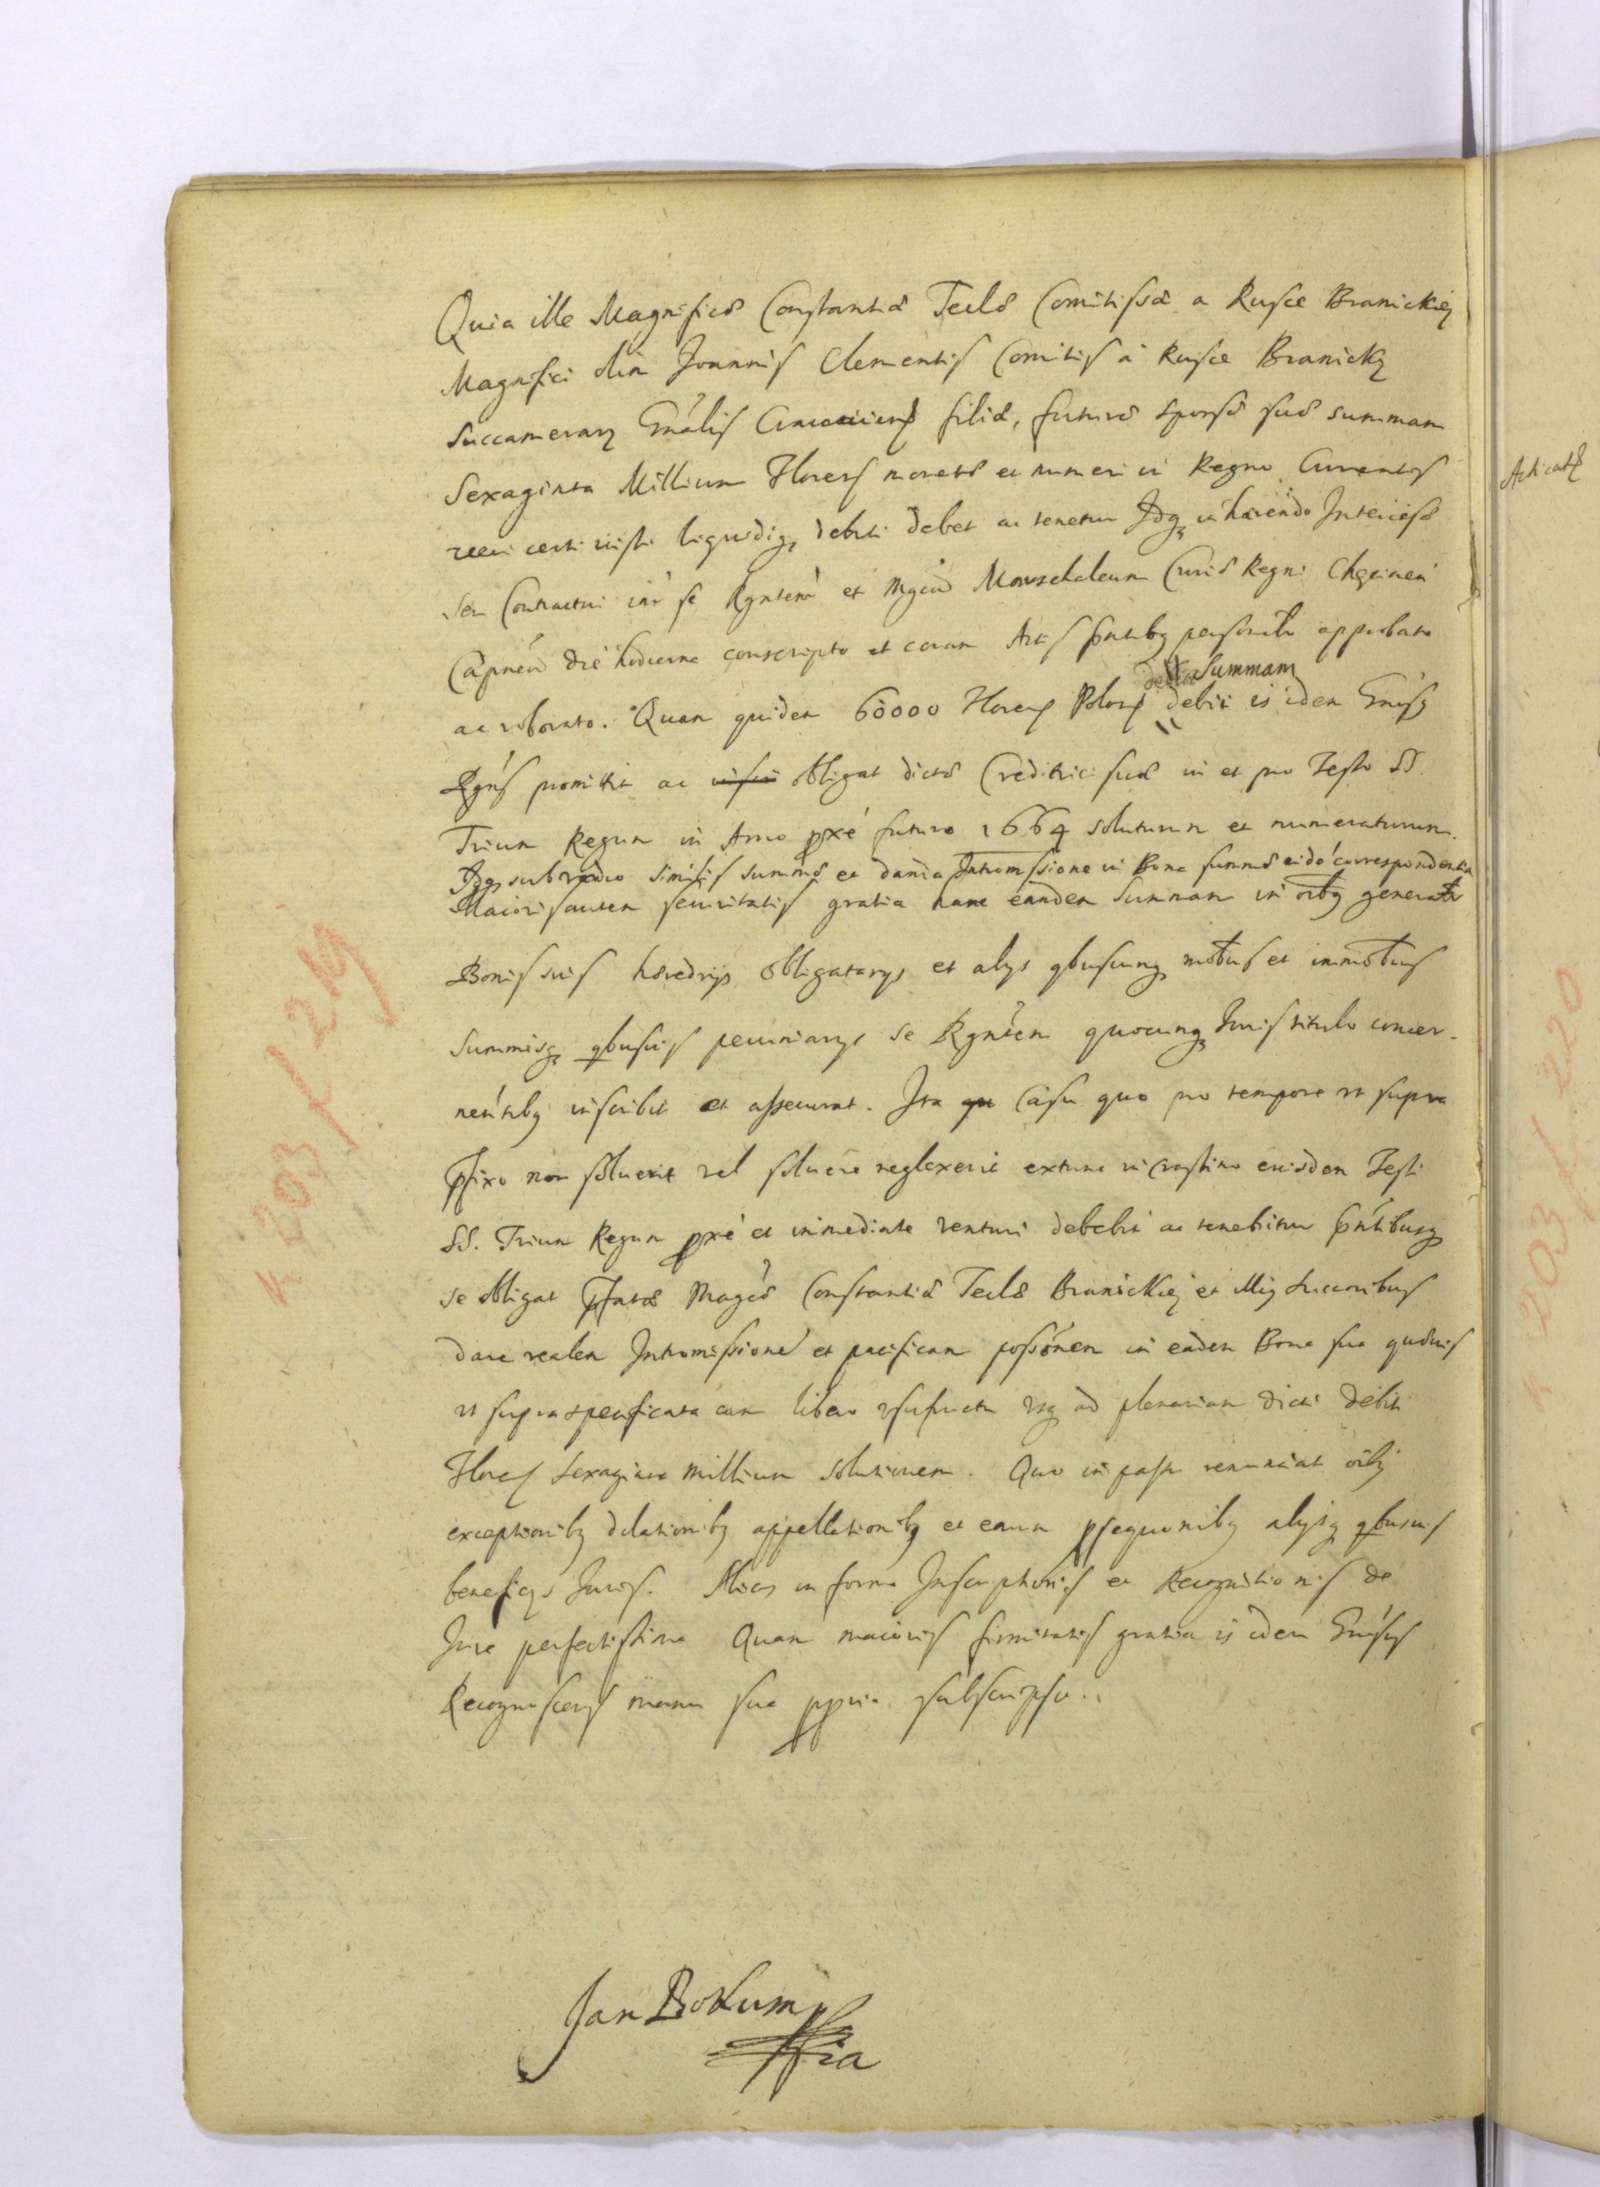 Quia ille Magnificæ Constantiæ Teclæ Comitissæ a Rusce Branickiey
Magnifici olim Joannis Clementis Comitis à Rusce Branicky
Succamerary Gnâlis Cracoviens filiæ, futuræ sponsæ suæ summam
Sexaginta Millium Florens monetæ et numeri in Regno Currentis
veri certi iusti liquidiq debiti debet ac tenetur Idq inhærendo Intercisæ
seu Contractui intr se Rgntem et Mgcu Marschaleum Curiæ Regni Chęcinen
Capneu die hodierna conscripto et coram Actis pntibq personalr approbato
ac roborato. Quam quidem 60000 Florens Polon debiti Summam is idem Gnosq
Rgns promittit ac obligat dictæ Creditrici suæ in et pro Festo SS.
Trium Regum in Anno pxe futuro 1664 soluturum et numeraturum.
Idq sub vadio similis summæ et danda Intromissione in Bona summæ eidē correspondentia
Maioris autem securitatis gratia hanc eandem Summam in oibq generatr
Bonis suis hæredrys obligatorys et alys qbuscunq mobus et immobus
Summisq qbusuis pecuniarys se Rgntem quocunq Juris titulo concer-
nentibq inscribit et assecurat. Ita casu quo pro tempore ut supra
pfixo non soluerit vel soluere neglexerit extunc in crastino eiusdem Festi
SS. Trium Regum pxe et immediate venturi debebit ac tenebitur pntibusq
se obligat pfatæ Magcæ Constantiæ Teclæ Branickiey et Illiq Succoribus
dare realem Intromissione et pacificam possonem in eadem Bona sua quævis
ut supra specificata cum libero usufructu usq ad plenariam dicti debiti
Flores Sexaginta Millium solutionem. Quo in passu renunciat oibq
exceptionibq dilationibq appellationibq et earum psequonibq alysq qbusuis
beneficys Juris. Alias in forma Inscriptionis et Recognitionis de
Jure perfectissima Quam maioris firmitatis gratia is idem Gnosus
Recognoscens manu sua ppria subscripsit.
Jan Bokum
mppria
Acticats